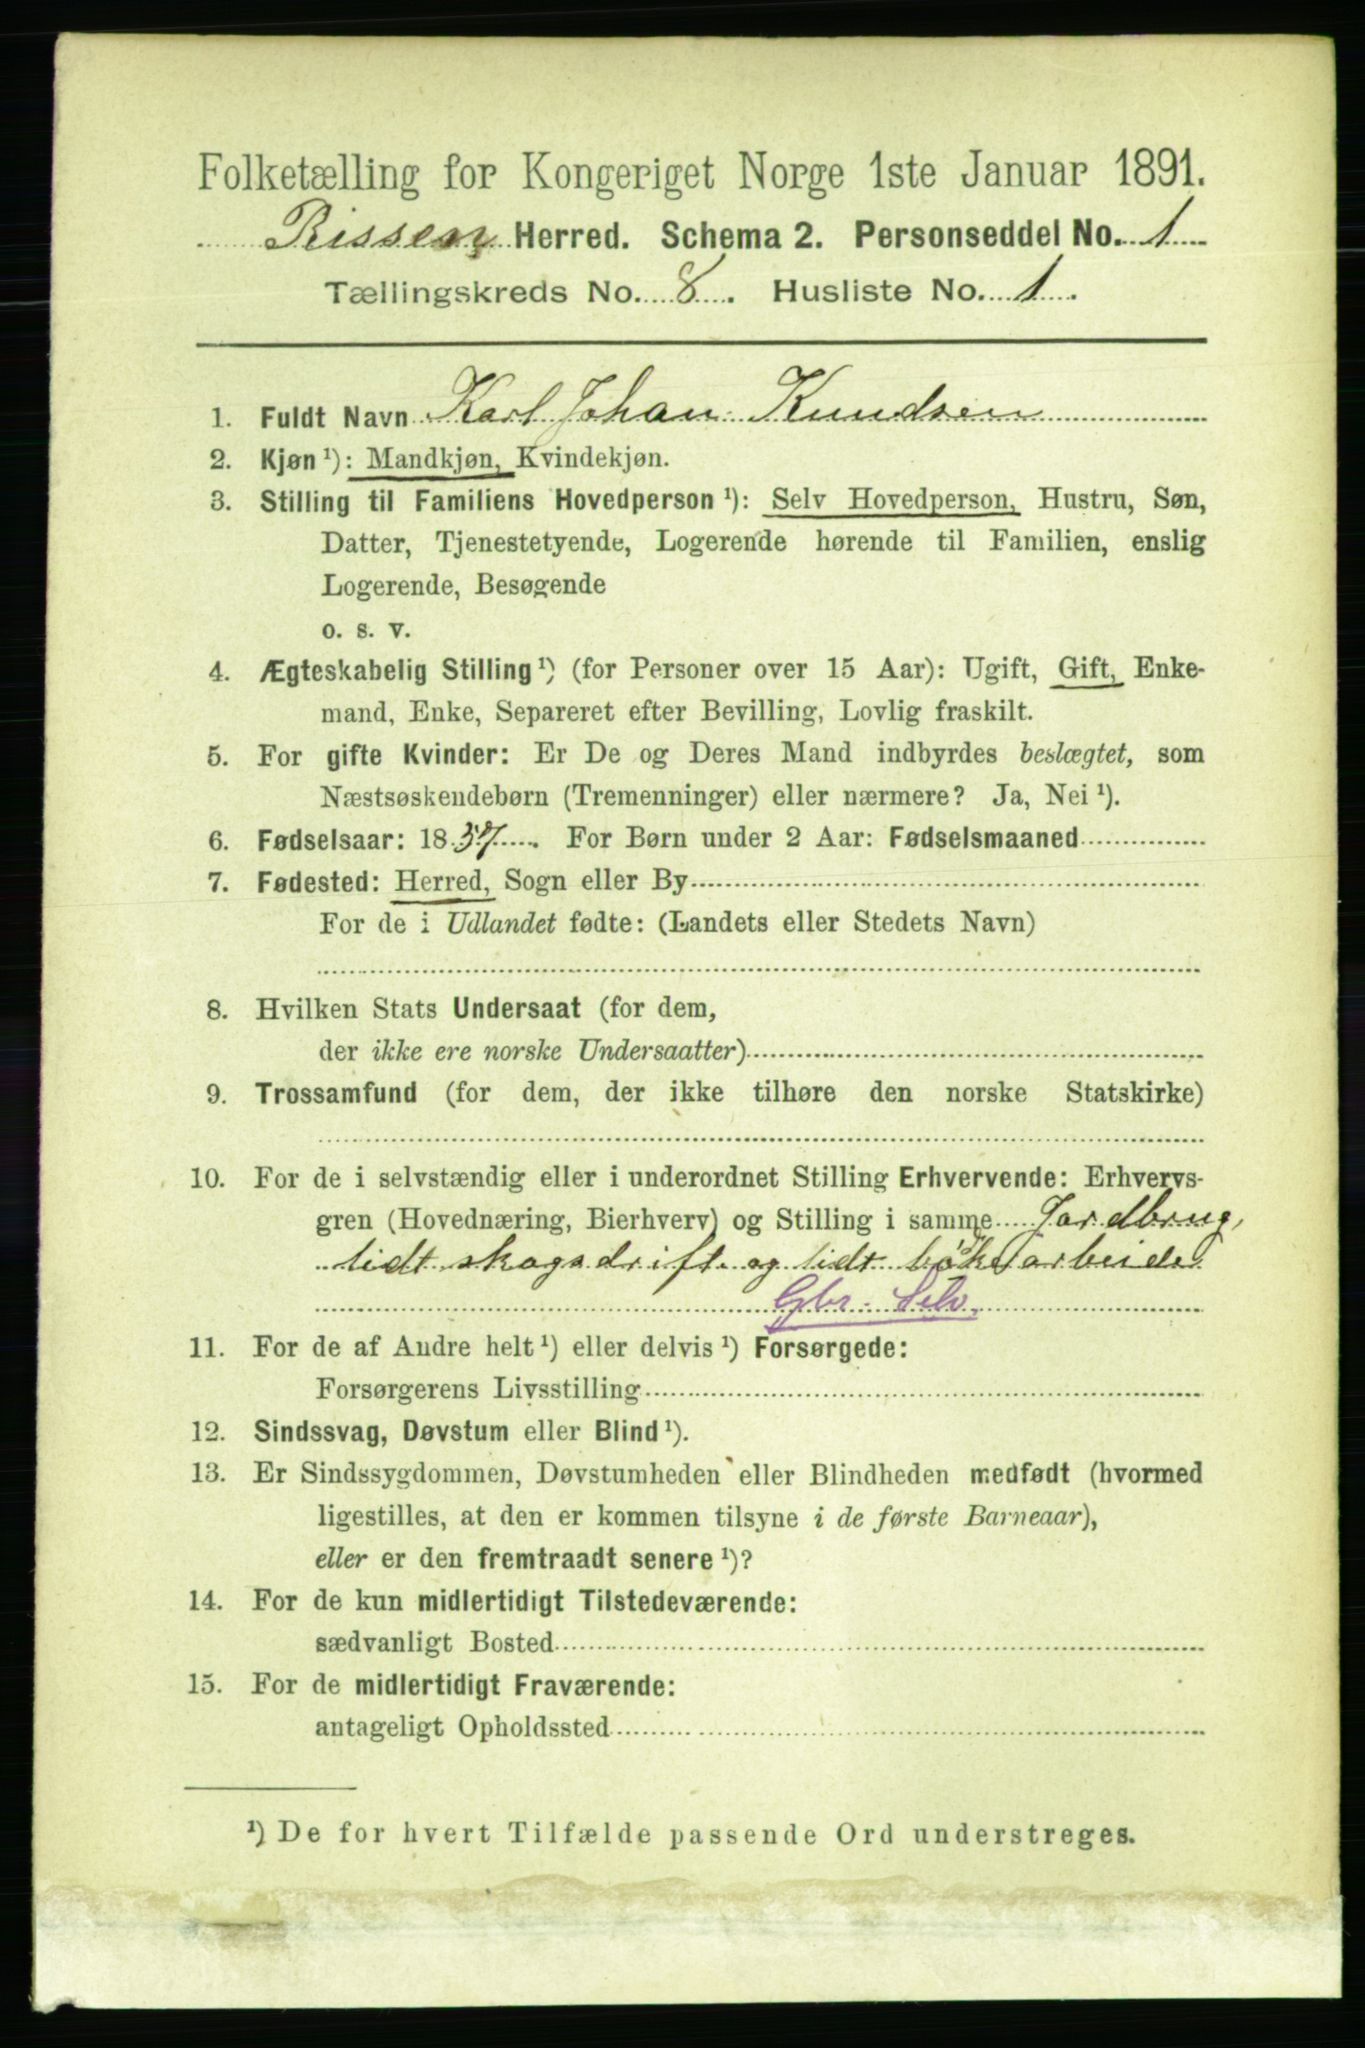 Folketælling for Kongeriget Norge 1ste Januar 1891.
Rissen Herred. Schema 2. Personseddel No. 1
Tællingskreds No. 8. Husliste No. 1.
1. Fuldt Navn Karl Johan Knudsen
2. Kjøn ¹): Mandkjøn, Kvindekjøn.
3. Stilling til Familiens Hovedperson ¹): Selv Hovedperson, Hustru, Søn,
Datter, Tjenestetyende, Logerende hørende til Familien, enslig
Logerende, Besøgende
o. s. v.
4. Ægteskabelig Stilling ¹) (for Personer over 15 Aar): Ugift, Gift, Enke-
mand, Enke, Separeret efter Bevilling, Lovlig fraskilt.
5. For gifte Kvinder: Er De og Deres Mand indbyrdes beslægtet, som
Næstsøskendebørn (Tremenninger) eller nærmere? Ja, Nei ¹).
6. Fødselsaar: 1837. For Børn under 2 Aar: Fødselsmaaned
7. Fødested: Herred, Sogn eller By
For de i Udlandet fødte: (Landets eller Stedets Navn)
8. Hvilken Stats Undersaat (for dem,
der ikke ere norske Undersaatter)
9. Trossamfund (for dem, der ikke tilhøre den norske Statskirke)
10. For de i selvstændig eller i underordnet Stilling Erhvervende: Erhvervs-
gren (Hovednæring, Bierhverv) og Stilling i samme Jordbrug,
lidt skogsdrift og lidt arbeide
Gbr. Selv.
11. For de af Andre helt ¹) eller delvis ¹) Forsørgede:
Forsørgerens Livsstilling
12. Sindssvag, Døvstum eller Blind ¹).
13. Er Sindssygdommen, Døvstumheden eller Blindheden medfødt (hvormed
ligestilles, at den er kommen tilsyne i de første Barneaar),
eller er den fremtraadt senere ¹)?
14. For de kun midlertidigt Tilstedeværende:
sædvanligt Bosted
15. For de midlertidigt Fraværende:
antageligt Opholdssted
¹) De for hvert Tilfælde passende Ord understreges.